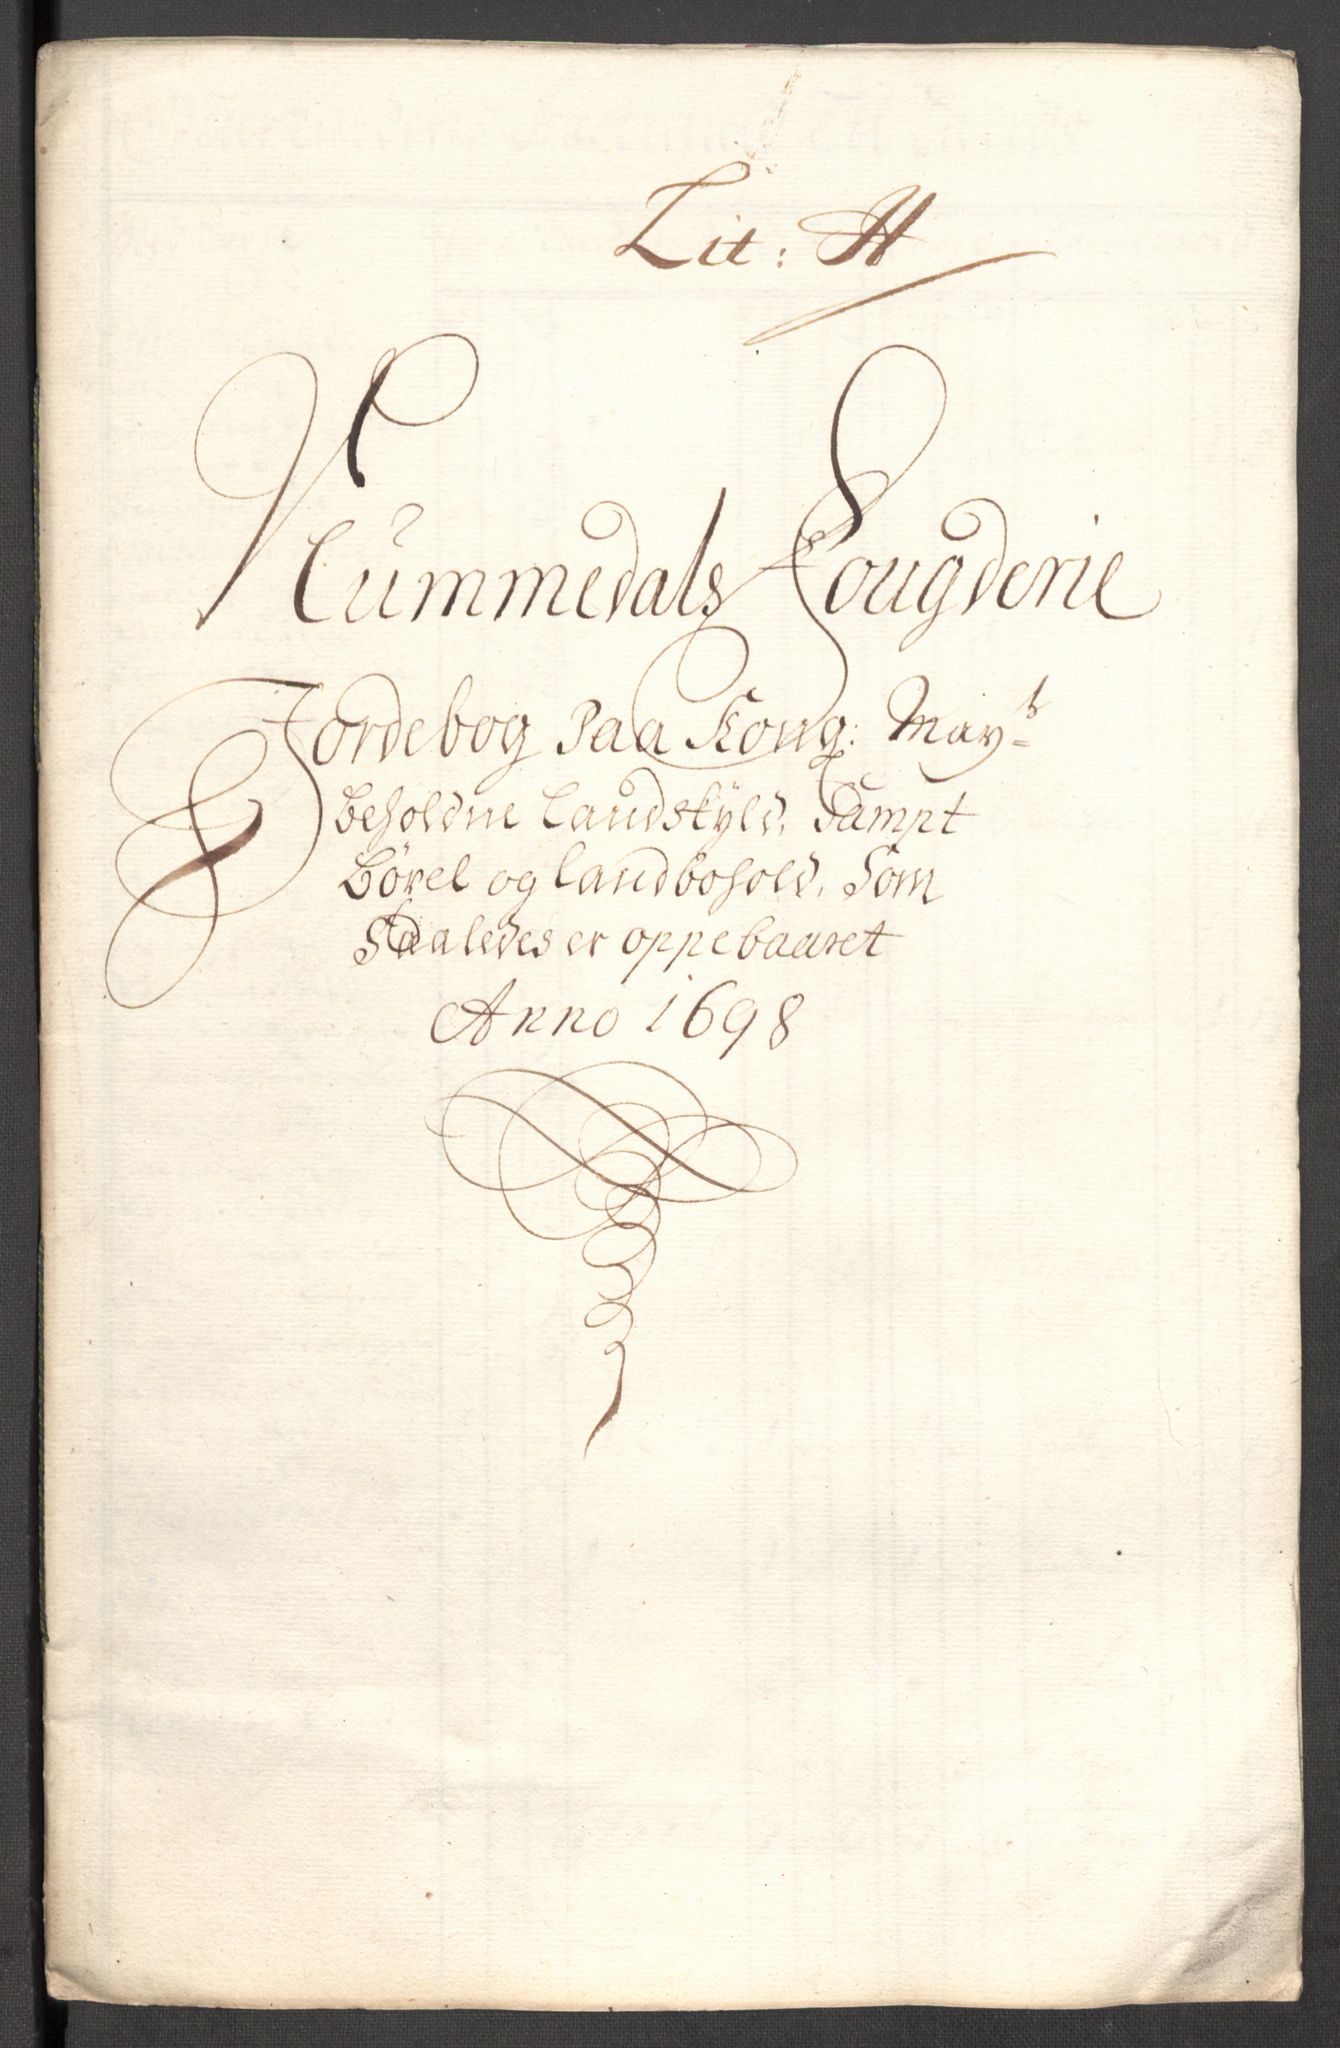 Lit: H
Nummedals Fougderie
Jordebog Paa Kong: Mayts
beholdne Landskyld, Sampt
Børel og landbohold, Som
Saaledes er oppebaaret
Anno 1698